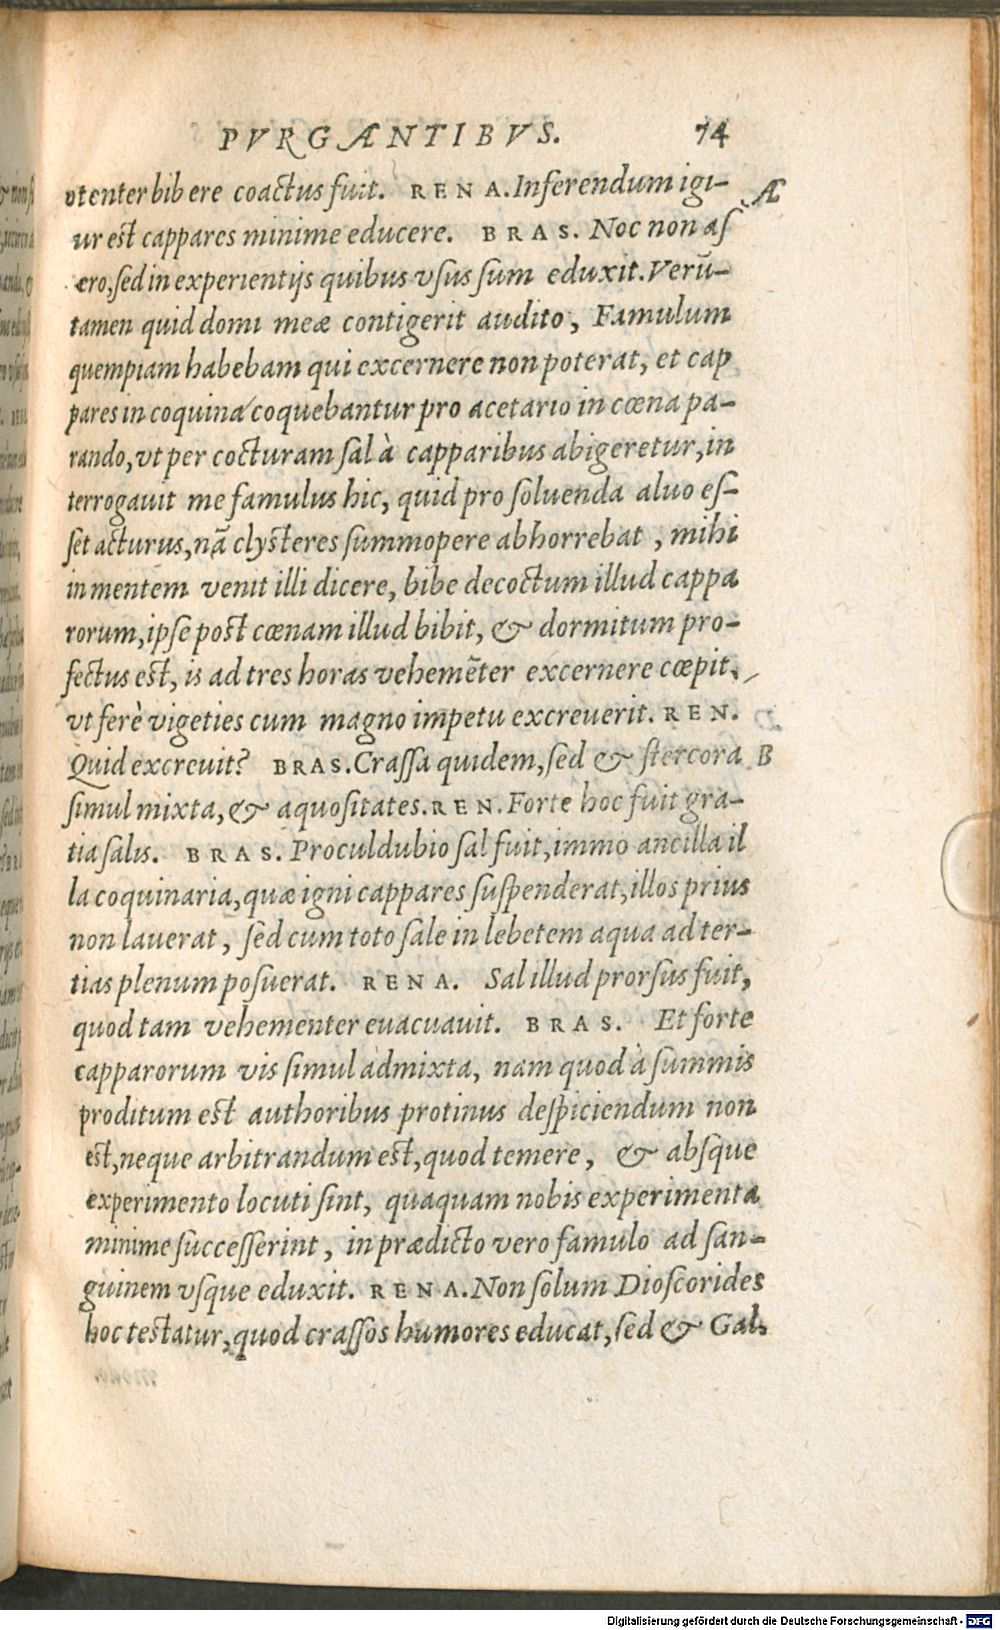 PVRGANTIBVS. 74
vtenter bibere coactus fuit. RENA. Inferendum igi- A
ur est cappares minime educere. BRAS. Noc non aſ
ero, ſed in experientijs quibus vſus ſum eduxit. Verū-
tamen quid domi meæ contigerit audito, Famulum
quempiam habebam qui excernere non poterat, et cap
pares in coquina coquebantur pro acetario in cœna pa-
rando, vt per cocturam ſal à capparibus abigeretur, in
terrogauit me famulus hic, quid pro ſoluenda aluo eſ-
ſet acturus, nā clyſteres ſummopere abhorrebat, mihi
in mentem venit illi dicere, bibe decoctum illud cappa
rorum, ipſe poſt cœnam illud bibit, & dormitum pro-
fectus eſt, is ad tres horas vehemēter excernere cœpit,
vt ferè vigeties cum magno impetu excreuerit. REN.
Quid excreuit? BRAS. Craſſa quidem, ſed & ſtercora B
ſimul mixta, & aquoſitates. REN. Forte hoc fuit gra-
tia ſalis. BRAS. Proculdubio ſal fuit, immo ancilla il
la coquinaria, quæ igni cappares ſuſpenderat, illos prius
non lauerat, ſed cum toto ſale in lebetem aqua ad ter-
tias plenum poſuerat. RENA. Sal illud prorſus fuit,
quod tam vehementer euacuauit. BRAS. Et forte
capparorum vis ſimul admixta, nam quod à ſummis
proditum eſt authoribus protinus deſpiciendum non
eſt, neque arbitrandum eſt, quod temere, & abſque
experimento locuti ſint, quaquam nobis experimenta
minime ſucceſſerint, in prædicto vero famulo ad ſan-
guinem vſque eduxit. RENA. Non ſolum Dioſcorides
hoc teſtatur, quod craſſos humores educat, ſed & Gal.
Digitalisierung gefördert durch die Deutsche Forschungsgemeinschaft - DFG